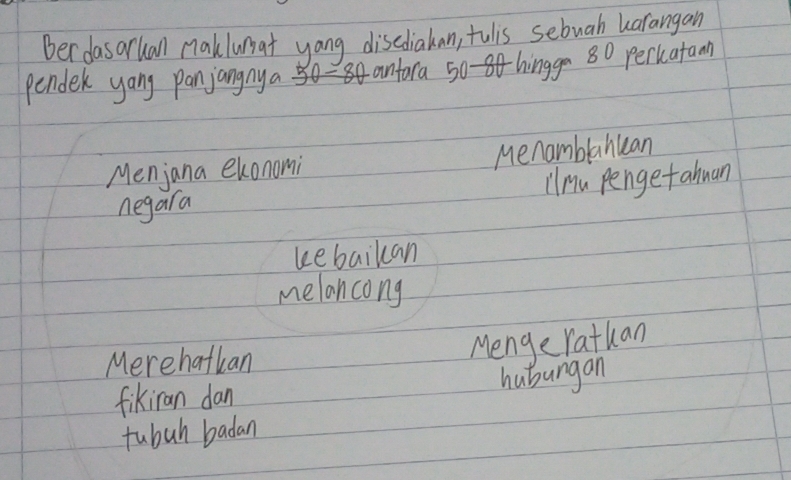 Berdasarkan Maklumat yang disediakan, tulis sebuah karangan
pendek yang panjangnya 50-80 antara 50-80 hingga 80 perkataan
Menjana ekonomi
negara
Menambahkan
ilmu pengetahuan
kebaikan
melancong
Merehatkan
fikiran dan
tubuh badan
Mengeratkan
hubungan